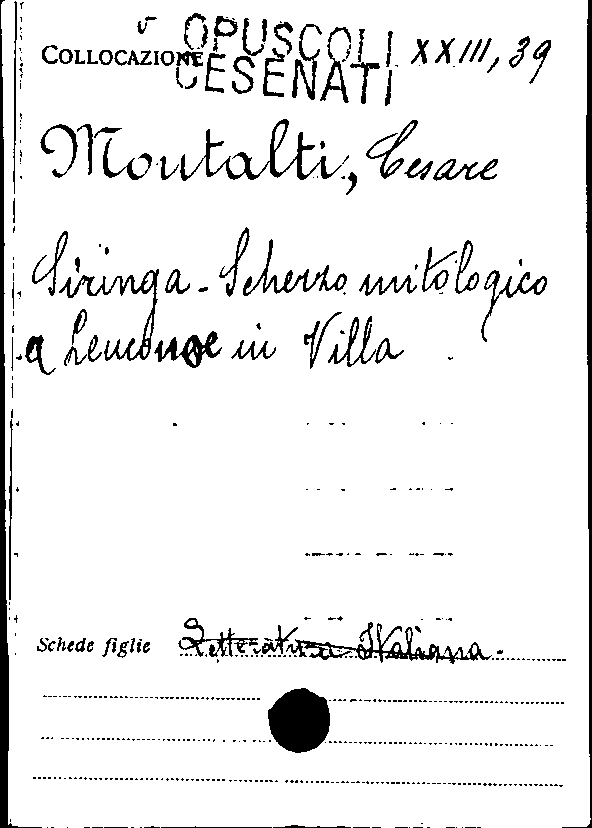 COLLOCAZIONE OPUSCOLI XXIII, 39
CESENATI
Montalti, Cesare
Siringa - Scherzo mitologico
a Leuconoe in Villa
Schede figlie Letteratura Italiana.